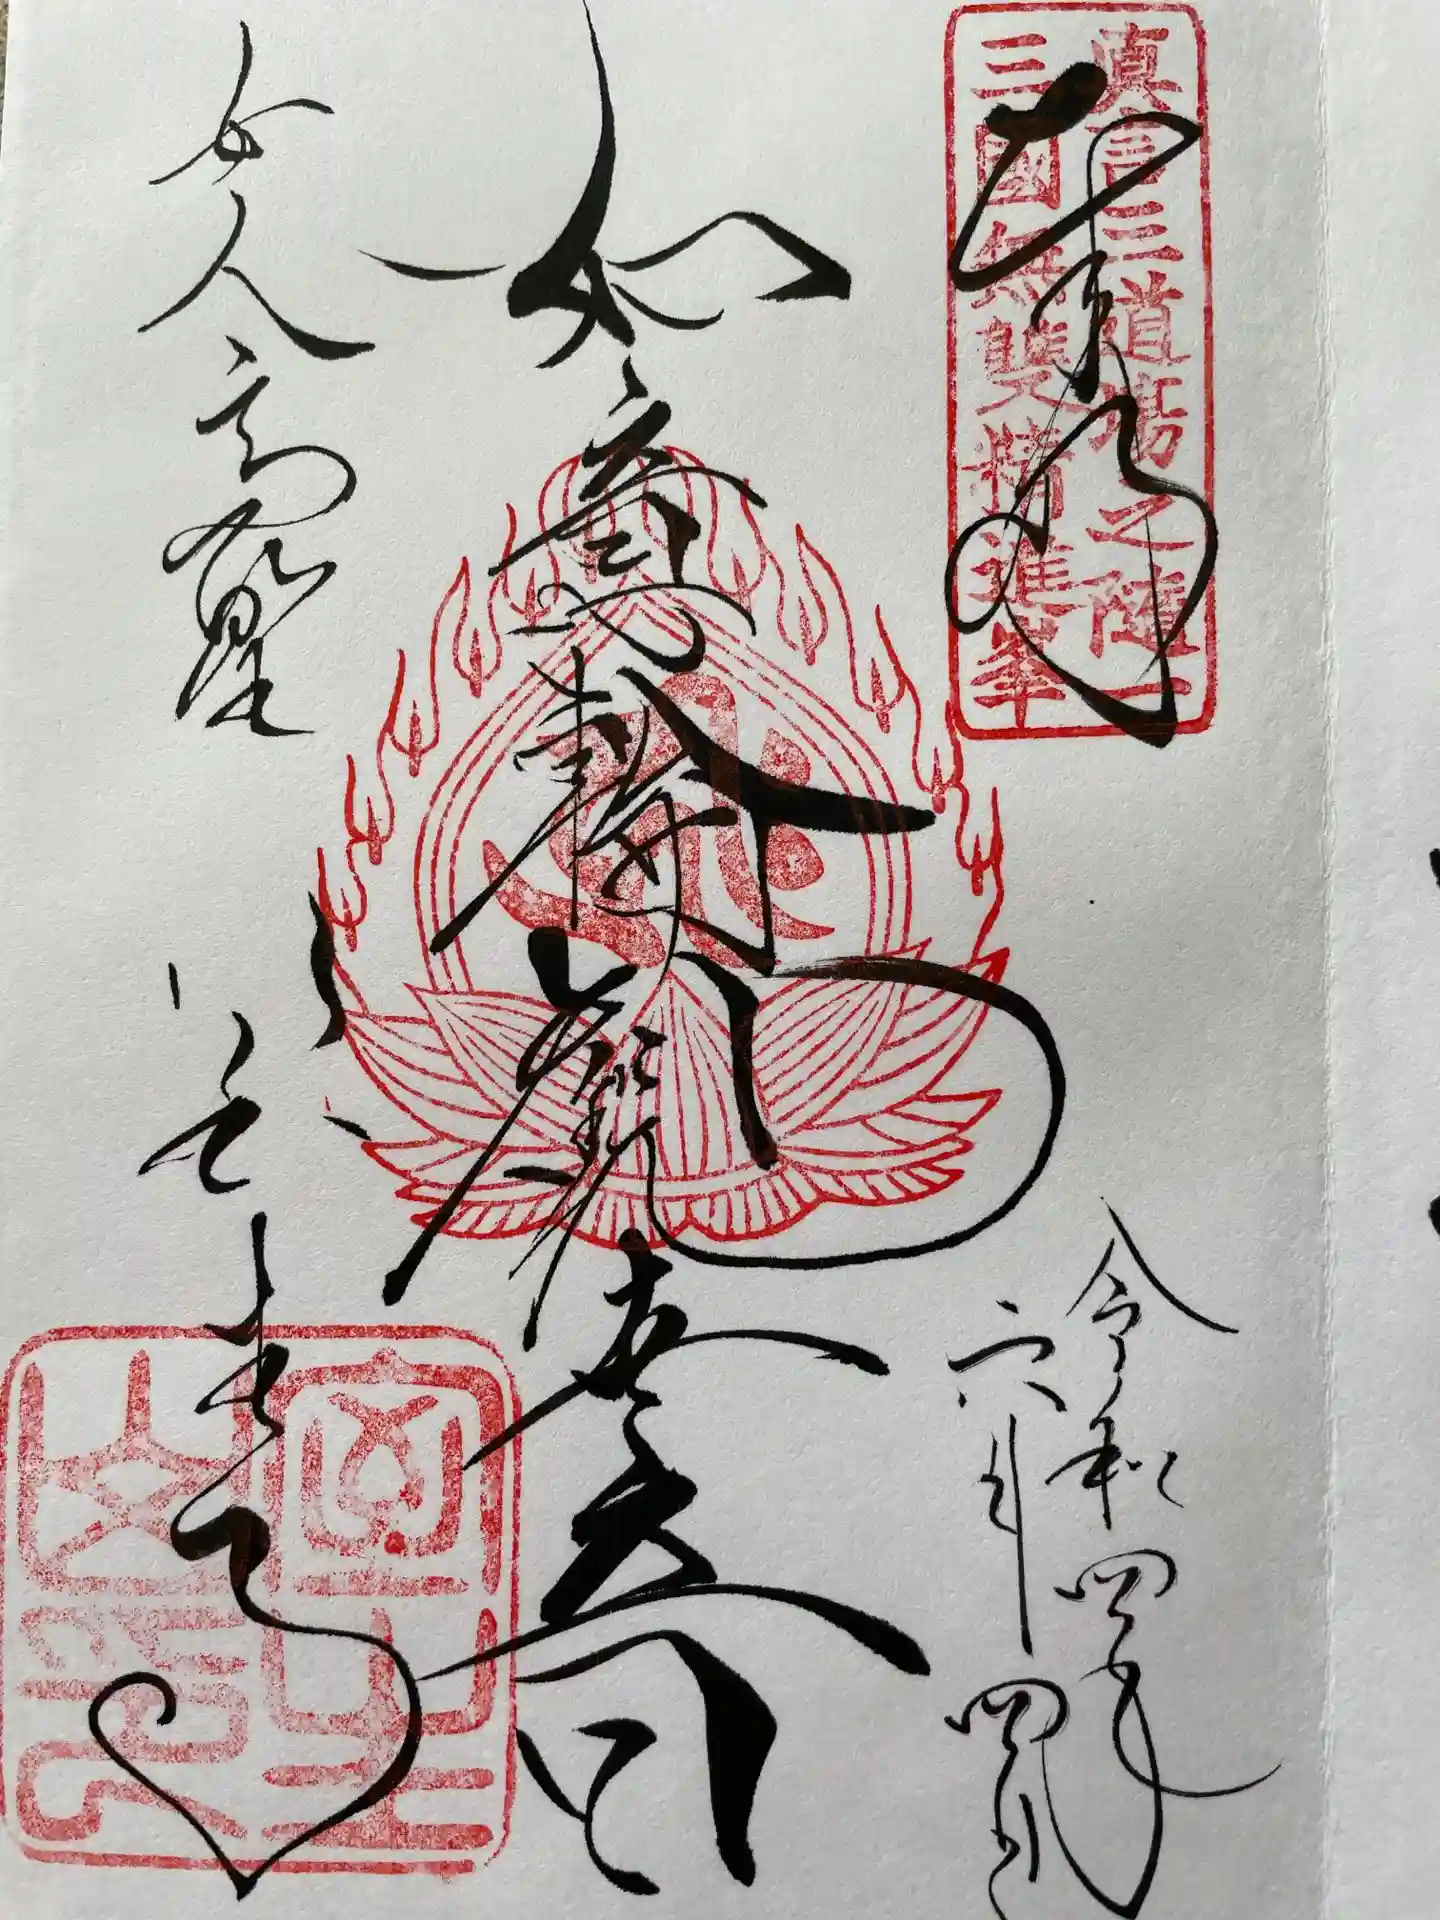 真言三道場之随一
三國無雙精進峯
奉拝
令和四年
六月四日
如意輪觀世音
女人高野
室生寺